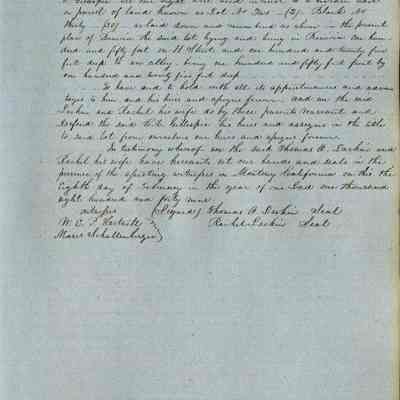 or parcel of land known as Lot No Two (2) Block No
Thirty (30) as laid down and numbered as shown in the present
plan of Benicia the said lot lying and being in Benicia one hun-
dred and fifty feet on H Street and one hundred and twenty five
feet deep to an alley being one hundred and fifty feet front by
one hundred and twenty five feet deep
To have and to hold with all its appurtenances and advan
tages to him and his heirs and assigns forever and we the said
and Rachel his wife do by these presents Warrant and
defend the said Gillespie his heirs and assigns in the title
to said lot from ourselves our heirs and assigns forever
In testimony whereof we the said Thomas O. Larkin and
Rachel his wife have hereunto set our hands and seals in the
presence of the subscribing witnesses in Monterey California on this the
Eighth day of February in the year of our Lord one thousand
eight hundred and forty nine
witnesses (Signed) Thomas O. Larkin Seal
W. E. P. Hartnell Rachel Larkin Seal
Moses Schallenberger